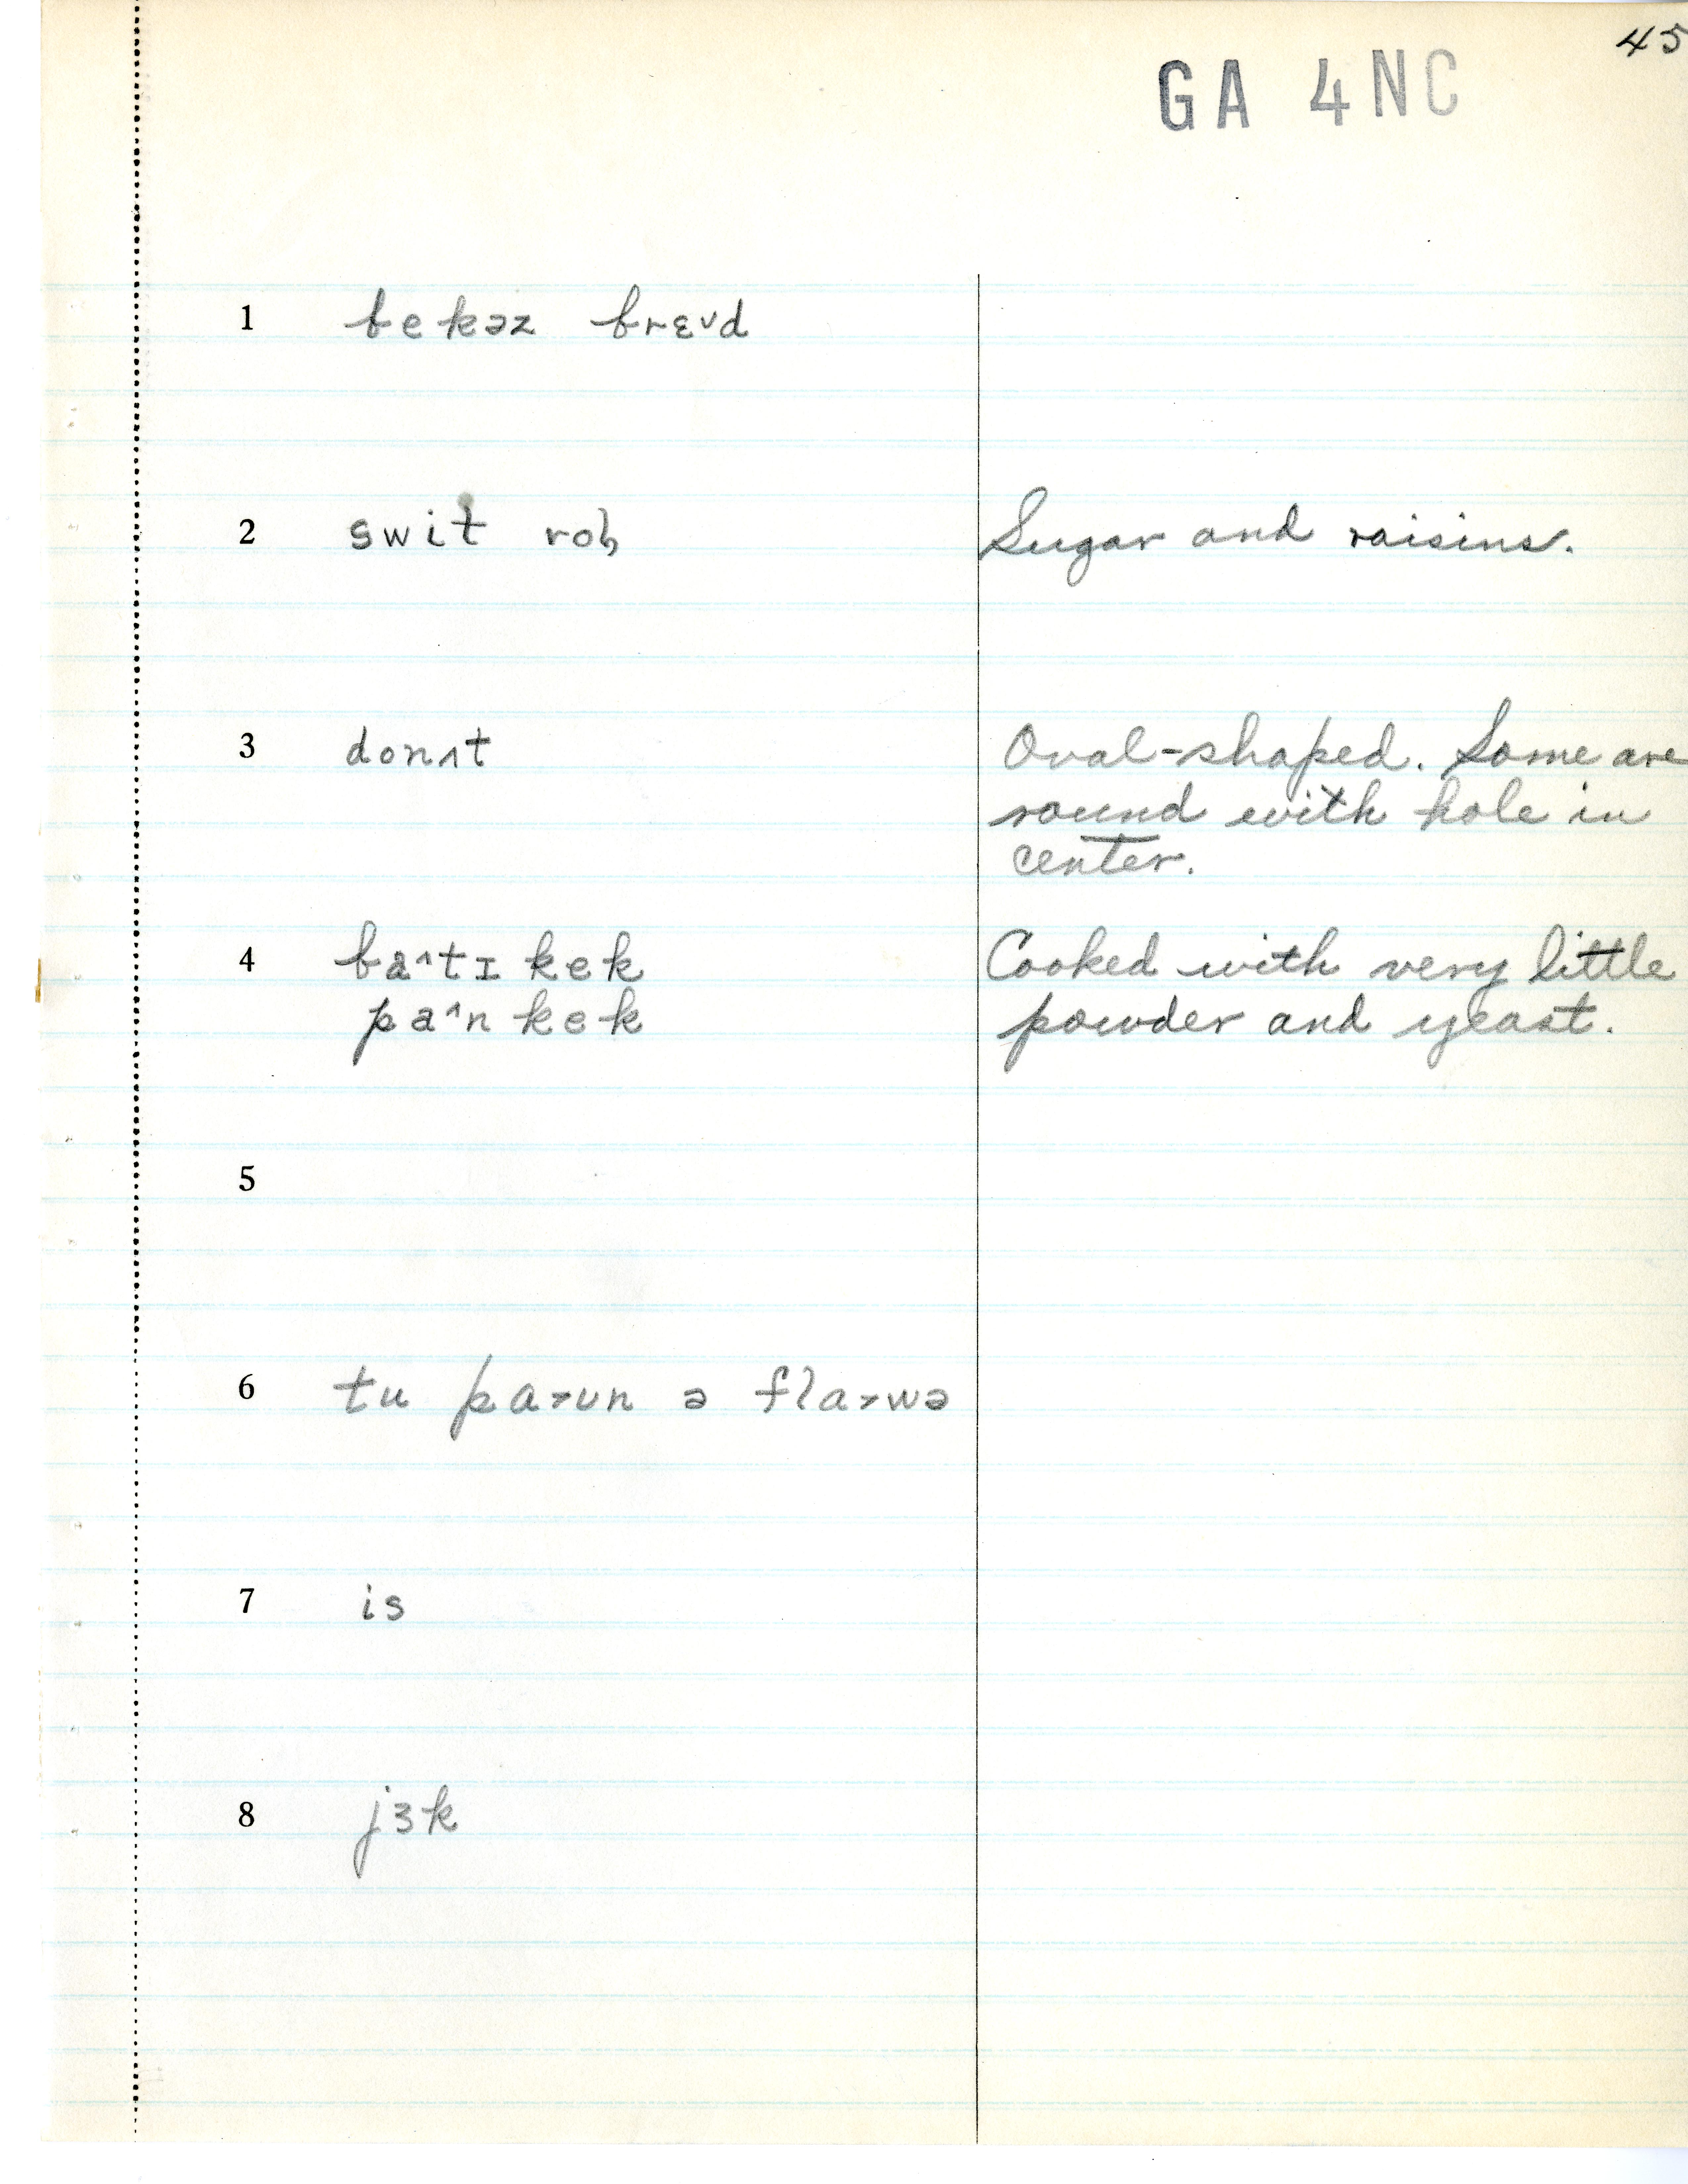 45
GA 4NC
1 bekəz brɛvd
2 swit rolz Sugar and raisins.
3 donʌt Oval-shaped. Some are
round with hole in
center.
4 ba^tɪ kek Cooked with very little
pa^n kek powder and yeast.
5
6 tu pa>un ə fla>wə
7 is
8 jɜk